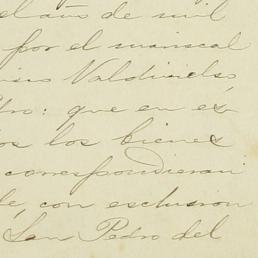 el año de mil
por el mariscal
Valdivielso
que en és-
los bienes
correspondieran
con esclusion
San Pedro del